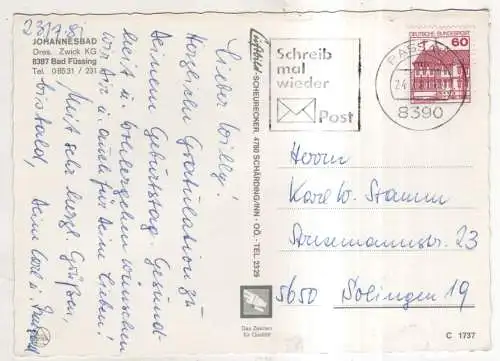 23.7.85
JOHANNESBAD
Dres. Zwick KG
8397 Bad Füssing
Tel. 08531 / 231
Lieber Willy!
Herzlichen Gratulation zu
Deinem Geburtstag. Gesund-
heit u. Wohlergehn wünschen
wir Dir u. auch für Deine Lieben!
Mit sehr herzl. Grüßen,
Deine
Luftbild-SCHEURECKER, 4780 SCHÄRDING/INN - OÖ. - TEL. 2329
Das Zeichen
für Qualität
Schreib
mal
wieder
Post
PASSAU
24
8390
DEUTSCHE BUNDESPOST
60
Herrn
Karl W. Stamm
23
5650 Solingen 19
C 1737